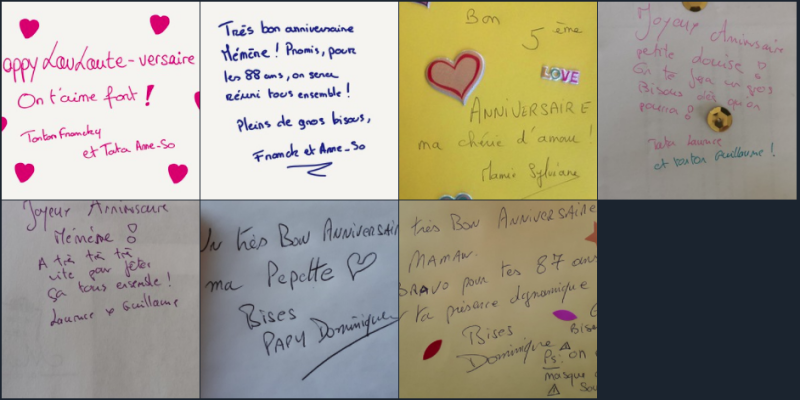 appy LouLoute-versaire
On t'aime fort !
Tonton Francky
et Tata Anne-So
Très bon anniversaire
Mémène ! Promis, pour
les 88 ans, on sera
réuni tous ensemble !
Pleins de gros bisous,
Franck et Anne-So
Bon
5 ème
LOVE
ANNIVERSAIRE
ma chérie d'amour !
Mamie Sylviane
Joyeux Anniversaire
petite Louise !
On te fera un gros
Bisous dès qu'on
pourra !
Tata Laurence
et tonton Guillaume !
Joyeux Anniversaire
Mémène !
A très très très
vite pour fêter
ça tous ensemble !
Laurence & Guillaume
Un très Bon ANNIVERSAIR
ma Pepette
Bises
PAPY Dominique
très Bon ANNIVERSAIRE
MAMAN.
BRAVO pour tes 87 ans
ta présence dynamique
Bises
Dominique
Bise
Ps: on
masque
Sou